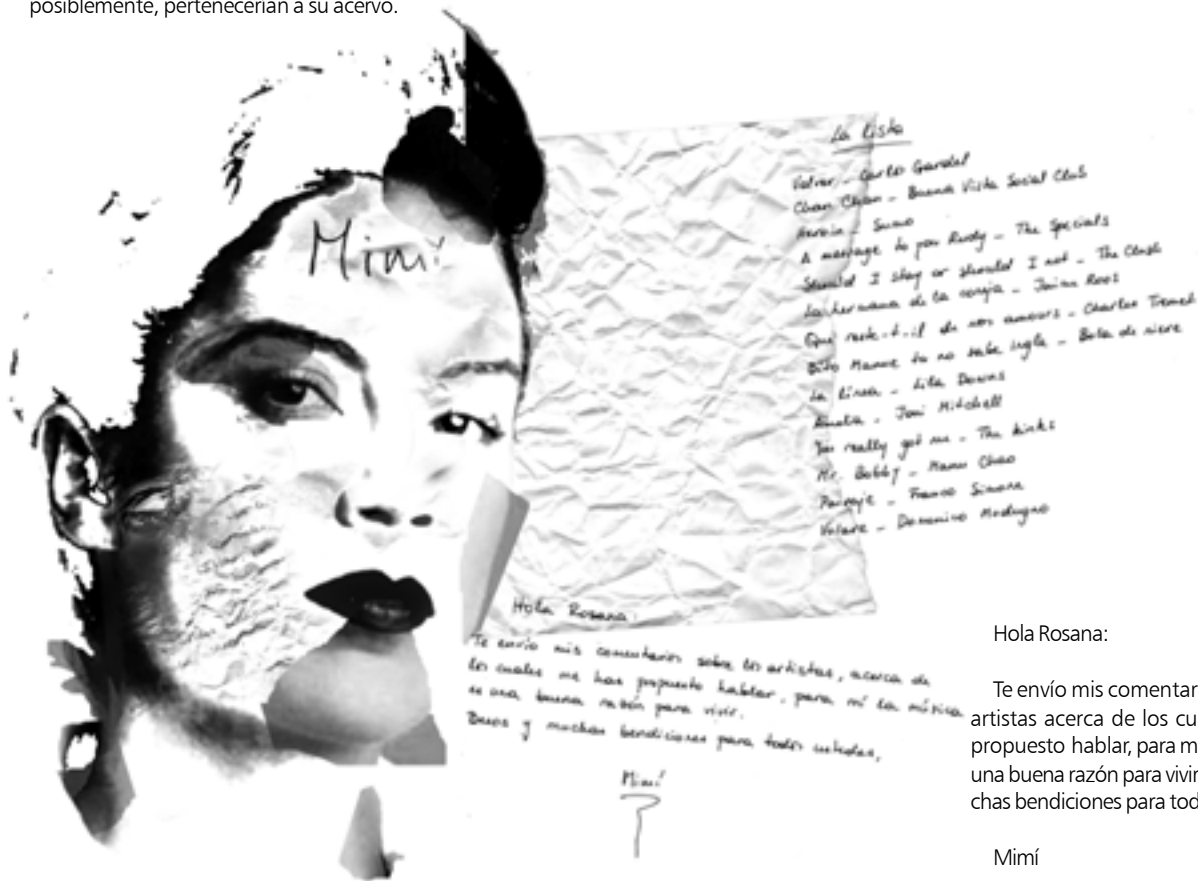 posiblemente, pertenecerían a su acervo.
Mimí
La lista
Volver - Carlos Gardel
Chan Chan - Buena Vista Social Club
Heroin - Sumo
A message to you Rudy - The Specials
Should I stay or should I not - The Clash
La hermana de la coneja - Jaime Roos
Que reste-t-il de nos amours - Charles Trenet
Bito Manue tu no sabe ingle - Bola de nieve
La línea - Lila Downs
Amelia - Joni Mitchell
You really got me - The Kinks
Mr. Bobby - Manu Chao
Paisaje - Franco Simone
Volare - Domenico Modugno
Hola Rosana:
Te envío mis comentarios sobre los artistas, acerca de
los cuales me han propuesto hablar, para mí la música
es una buena razón para vivir.
Besos y muchas bendiciones para todos ustedes,
Mimí
Hola Rosana:
Te envío mis comentar
artistas acerca de los cu
propuesto hablar, para m
una buena razón para vivir
chas bendiciones para tod
Mimí